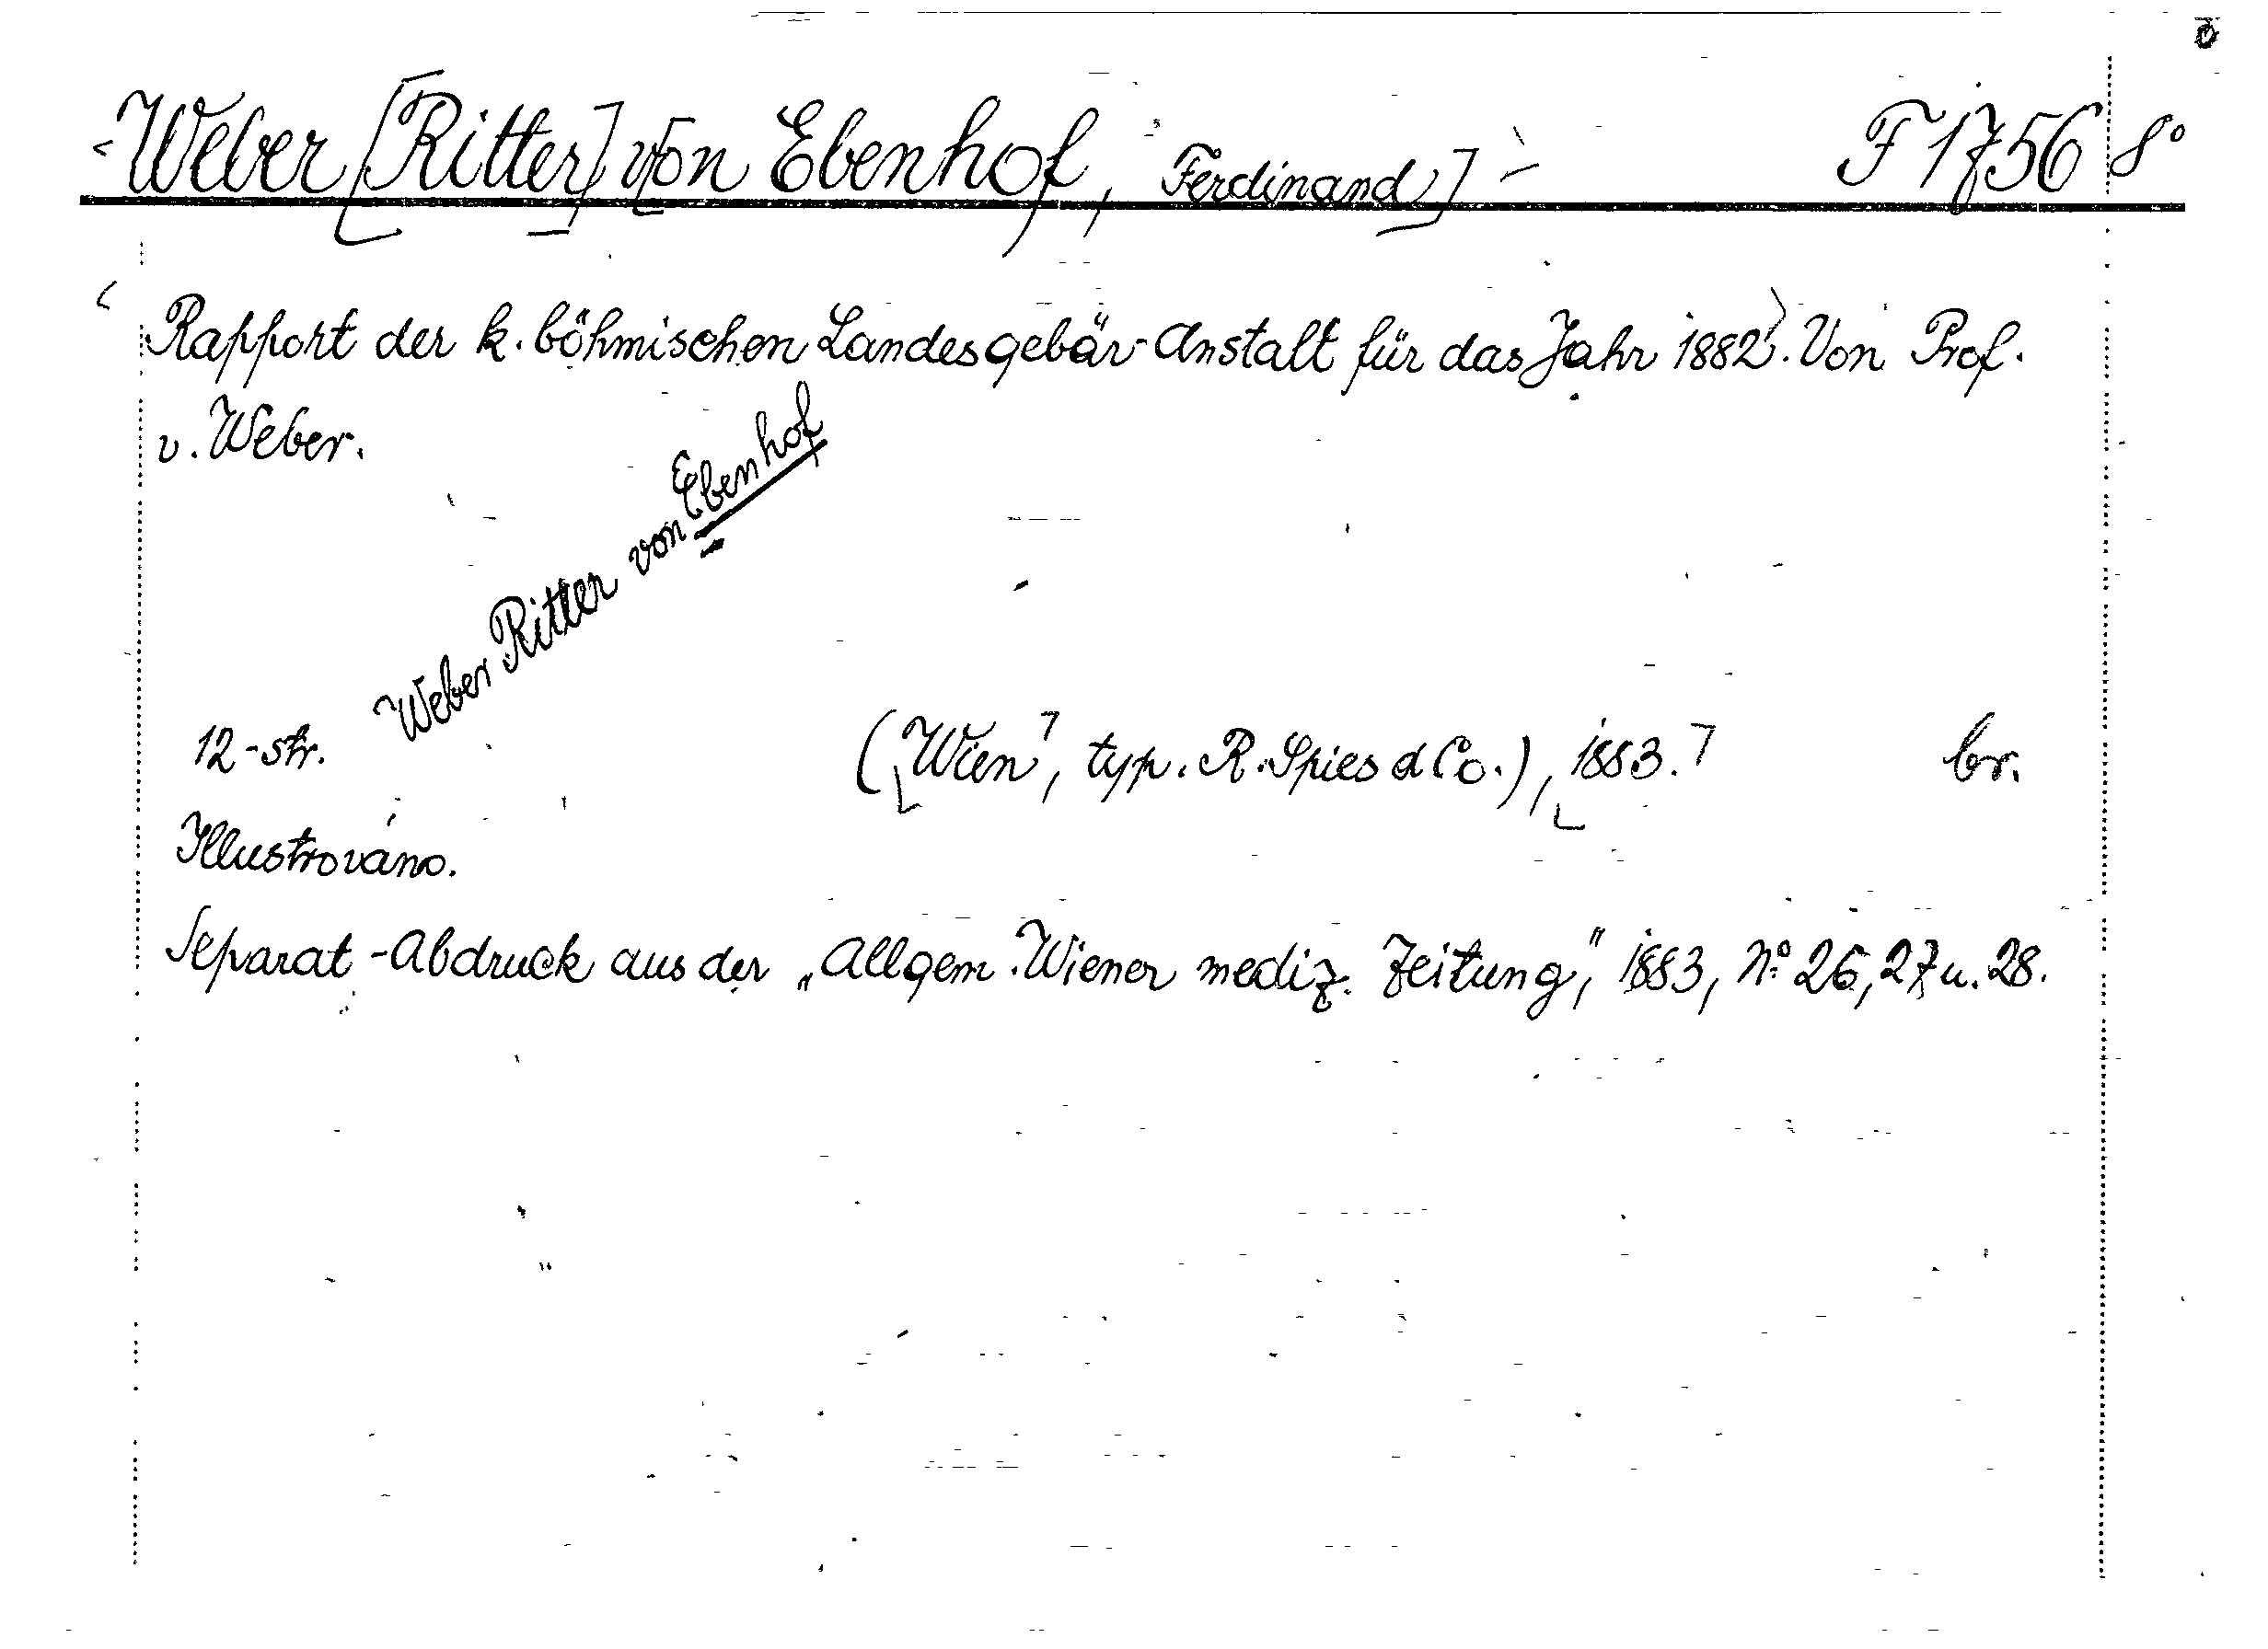 Weber [Ritter] von Ebenhof, Ferdinand] F 1756 8°
Rapport der k. böhmischen Landesgebär-Anstalt für das Jahr 1882. Von Prof.
v. Weber.
Weber Ritter von Ebenhof
12 - str. (Wien, typ. R. Spies & Co.), 1883. br.
Illustrováno.
Separat-Abdruck aus der „Allgem. Wiener mediz. Zeitung," 1883, No. 26, 27 u. 28.